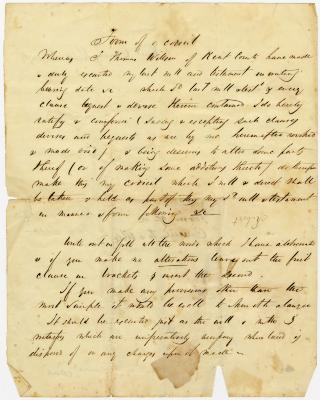 Form of a codicil
Whereas I Thomas Willson of Kent County have made
& duly executed my last will and testament in writing
bearing date &c which sd last will & test & every
clause bequest & devise therein contained I do hereby
ratify & confirm (saving & excepting such clauses
devises and bequests as are by me hereinafter revoked
& made void) & being desirous to alter some parts
thereof (or of making some additions thereto) do therefore
make this my codicil which I will & direct shall
be taken & held as part of my sd will & testament
in manner & form following &c
Write out in full all the words which I have abbreviated
& if you make no alterations leave out the first
clause in brackets & insert the second.
If you make any provisions other than the
most simple it would be well to shew to a lawyer
It should be executed just as the will & with 3
witnesses which are imperatively necessary when land is
disposed of or any charge upon it made